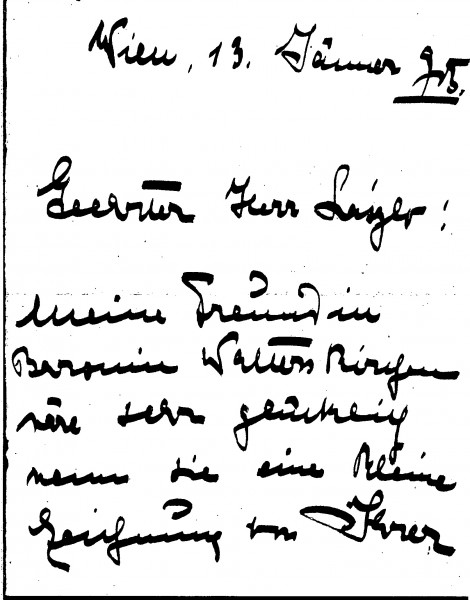 Wien, 13. Jänner 95.
Geehrter Herr László!
meine Freundin
Baronin Walterskirchen
wäre sehr glücklich
wenn sie eine kleine
Zeichnung von Ihrer